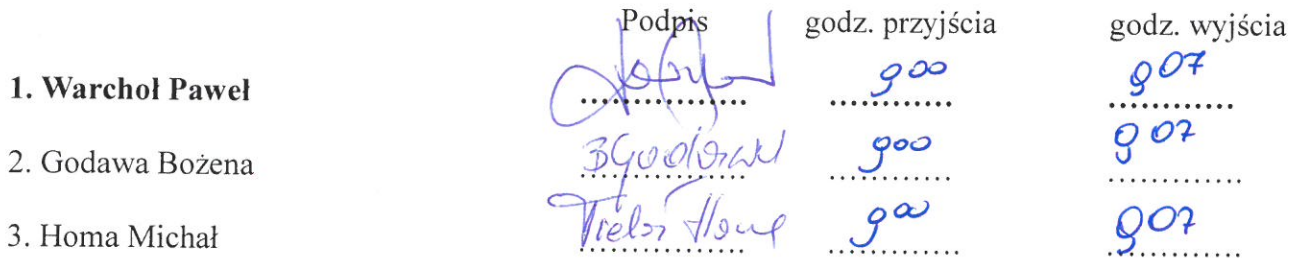 Podpis godz. przyjścia godz. wyjścia
1. Warchoł Paweł 9 00 9 07
2. Godawa Bożena BGodawa 9 00 9 07
3. Homa Michał 9 00 9 07